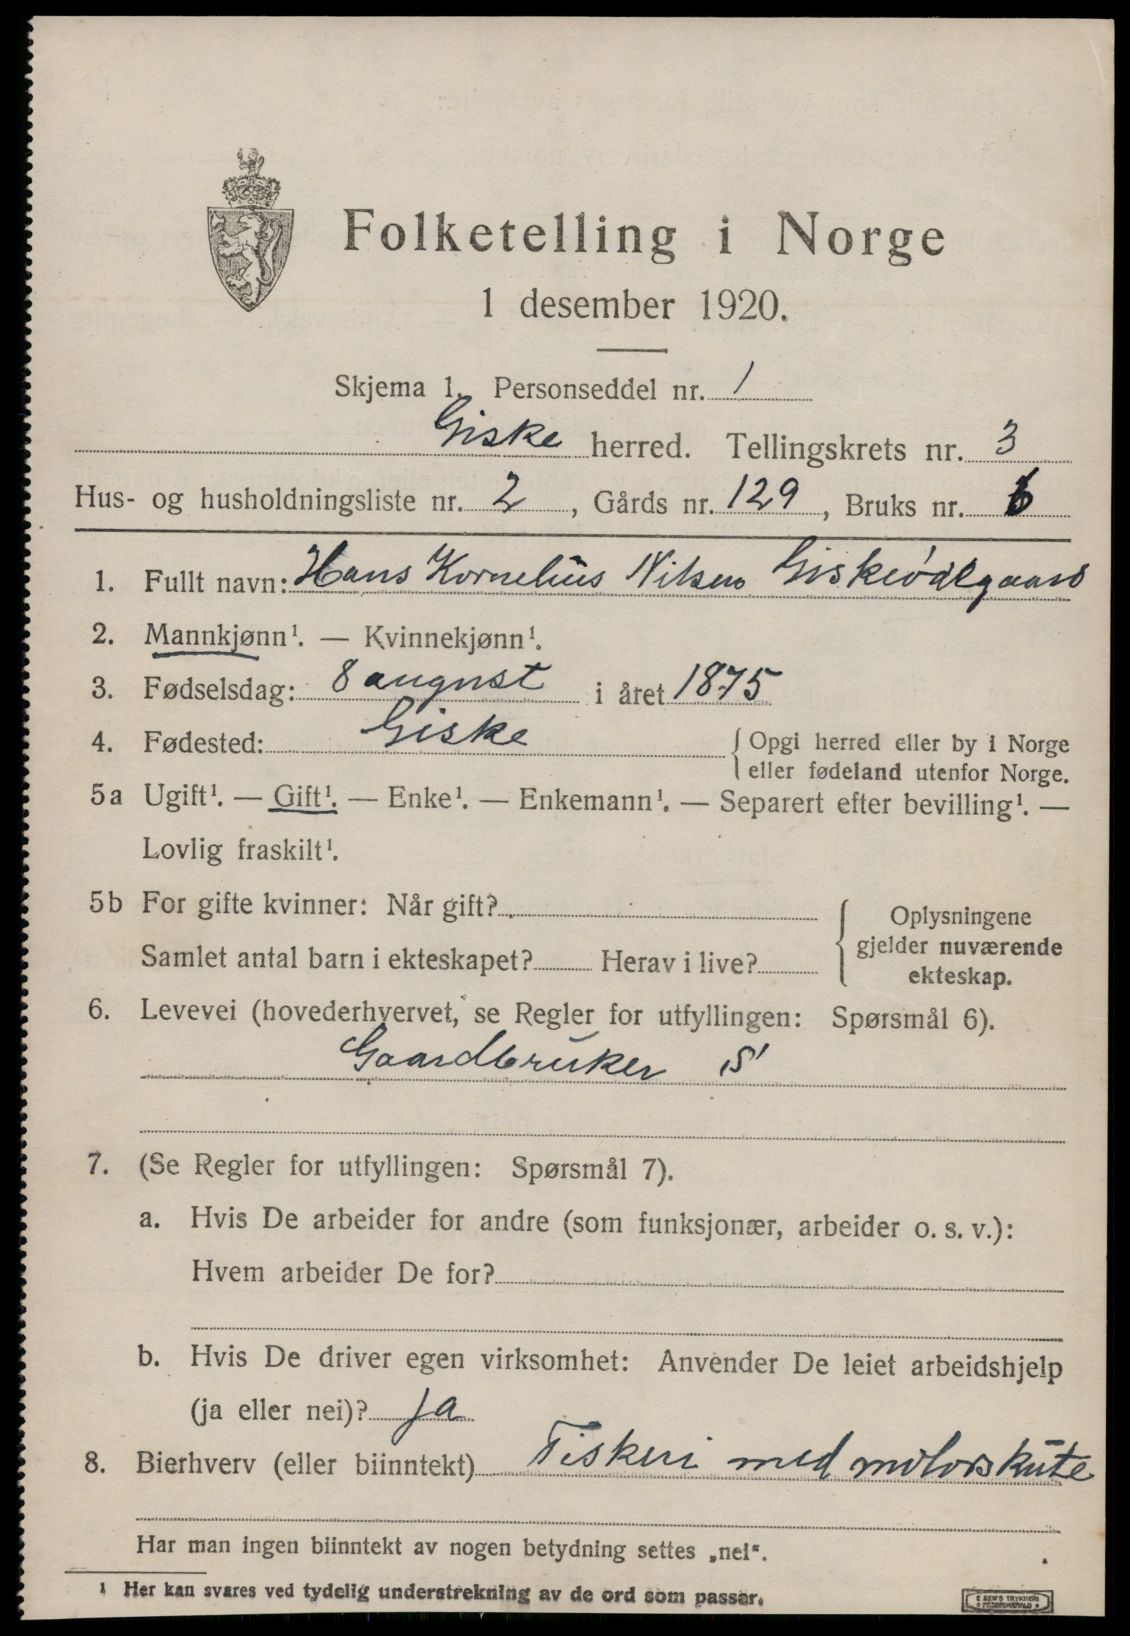 Folketelling i Norge
1 desember 1920.
Skjema 1. Personseddel nr. 1
Giske herred. Tellingskrets nr. 3
Hus- og husholdningsliste nr. 2, Gårds nr. 129, Bruks nr. 6
1. Fullt navn: Hans Kornelius Nilsen Giskeødegaard
2. Mannkjønn¹. — Kvinnekjønn¹.
3. Fødselsdag: 8 august i året 1875
4. Fødested: Giske {Opgi herred eller by i Norge
eller fødeland utenfor Norge.
5a Ugift¹. — Gift¹. — Enke¹. — Enkemann¹. — Separert efter bevilling¹. —
Lovlig fraskilt¹.
5b For gifte kvinner: Når gift?
Samlet antal barn i ekteskapet? Herav i live?
{ Oplysningene
gjelder nuværende
ekteskap.
6. Levevei (hovederhvervet, se Regler for utfyllingen: Spørsmål 6).
Gaardbruker S
7. (Se Regler for utfyllingen: Spørsmål 7).
a. Hvis De arbeider for andre (som funksjonær, arbeider o. s. v.):
Hvem arbeider De for?
b. Hvis De driver egen virksomhet: Anvender De leiet arbeidshjelp
(ja eller nei)? ja
8. Bierhverv (eller biinntekt) Fiskeri med motorskute
Har man ingen biinntekt av nogen betydning settes „nei“.
¹ Her kan svares ved tydelig understrekning av de ord som passer.